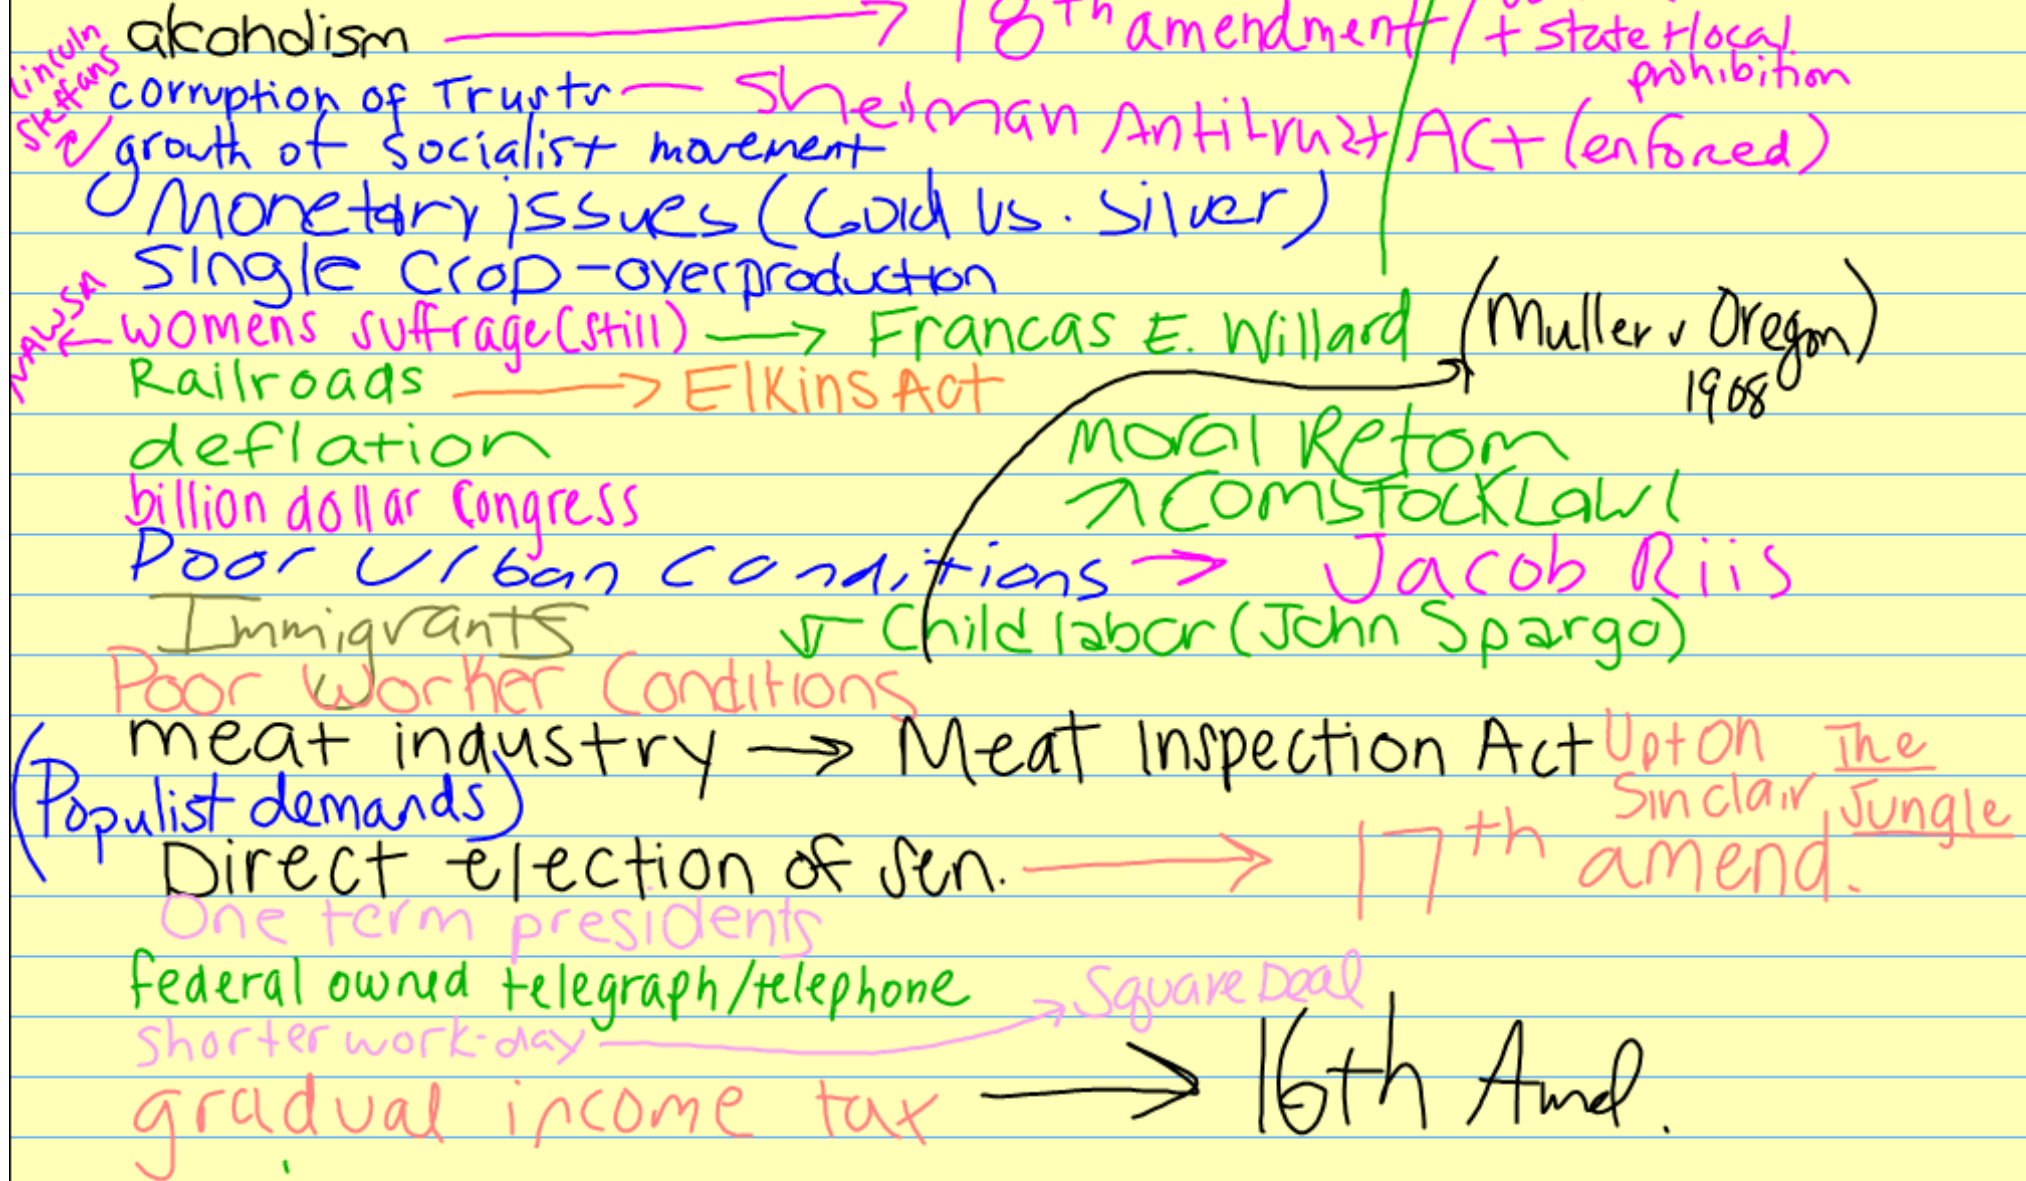 alcoholism → 18th amendment / + state + local prohibition
Lincoln Steffans
corruption of Trusts — Sherman Antitrust Act (enforced)
growth of socialist movement
Monetary issues (Gold vs. Silver)
Single Crop-overproduction
NAWSA ← womens suffrage (still) → Francas E. Willard (Muller v Oregon) 1908
Railroads → Elkins Act
deflation Moral Reform
billion dollar Congress ↗ Comstock Law
Poor Urban Conditions → Jacob Riis
Immigrants Child labor (John Spargo)
Poor Worker Conditions
meat industry → Meat Inspection Act Upton Sinclair The Jungle
(Populist demands)
Direct election of Sen. → 17th amend.
One term presidents
federal owned telegraph/telephone
shorter work-day → Square Deal
gradual income tax → 16th Amd.